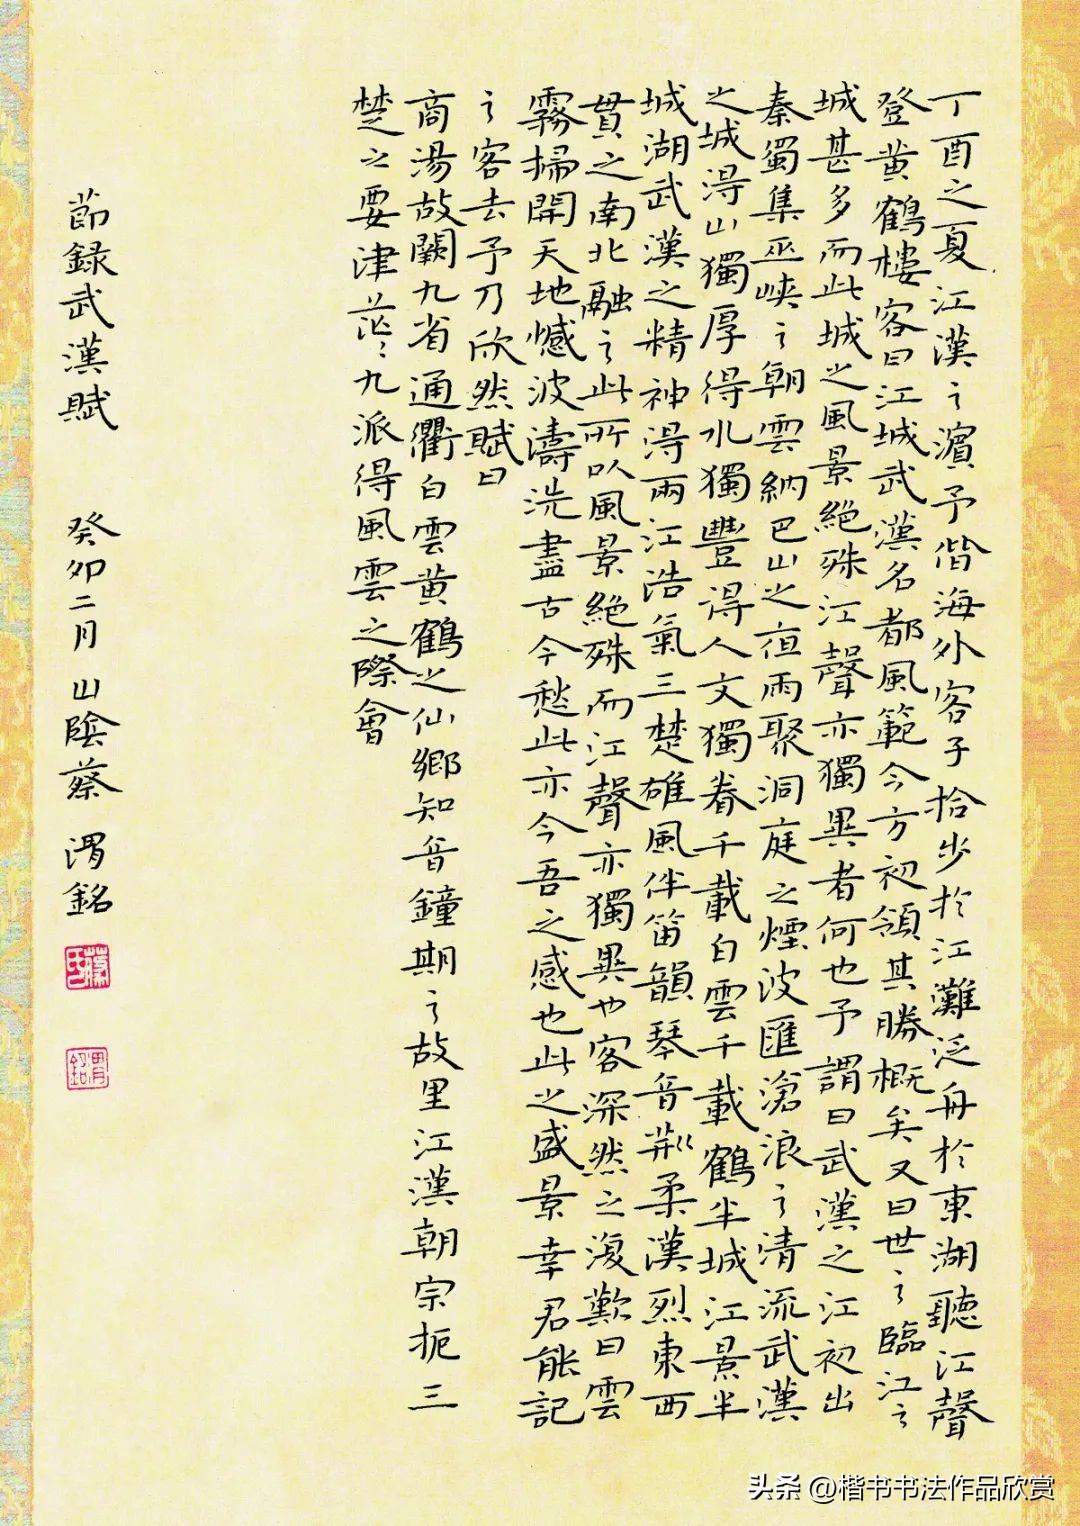 丁酉之夏江漢之濱予偕海外客子拾步於江灘泛舟於東湖聽江聲
登黄鶴樓客曰江城武漢名都風範今方初領其勝概矣又曰世之臨江之
城甚多而此城之風景絕殊江聲亦獨異者何也予謂曰武漢之江初出
秦蜀集巫峽之朝雲納巴山之夜雨聚洞庭之煙波匯滄浪之清流武漢
之城得山獨厚得水獨豐得人文獨眷千載白雲千載鶴半城江景半
城湖武漢之精神得兩江浩氣三楚雄風伴笛韻琴音荊柔漢烈東西
貫之南北融之此所以風景絕殊而江聲亦獨異也客深然之復歎曰雲
霧掃開天地憾波濤洗盡古今愁此亦今吾之感也此之盛景幸君能記
之客去予乃欣然賦曰
商湯故闕九省通衢白雲黄鶴之仙鄉知音鐘期之故里江漢朝宗扼三
楚之要津茫茫九派得風雲之際會
節録武漢賦 癸卯二月山陰蔡渭銘
蔡氏
渭銘
头条 @楷书书法作品欣赏